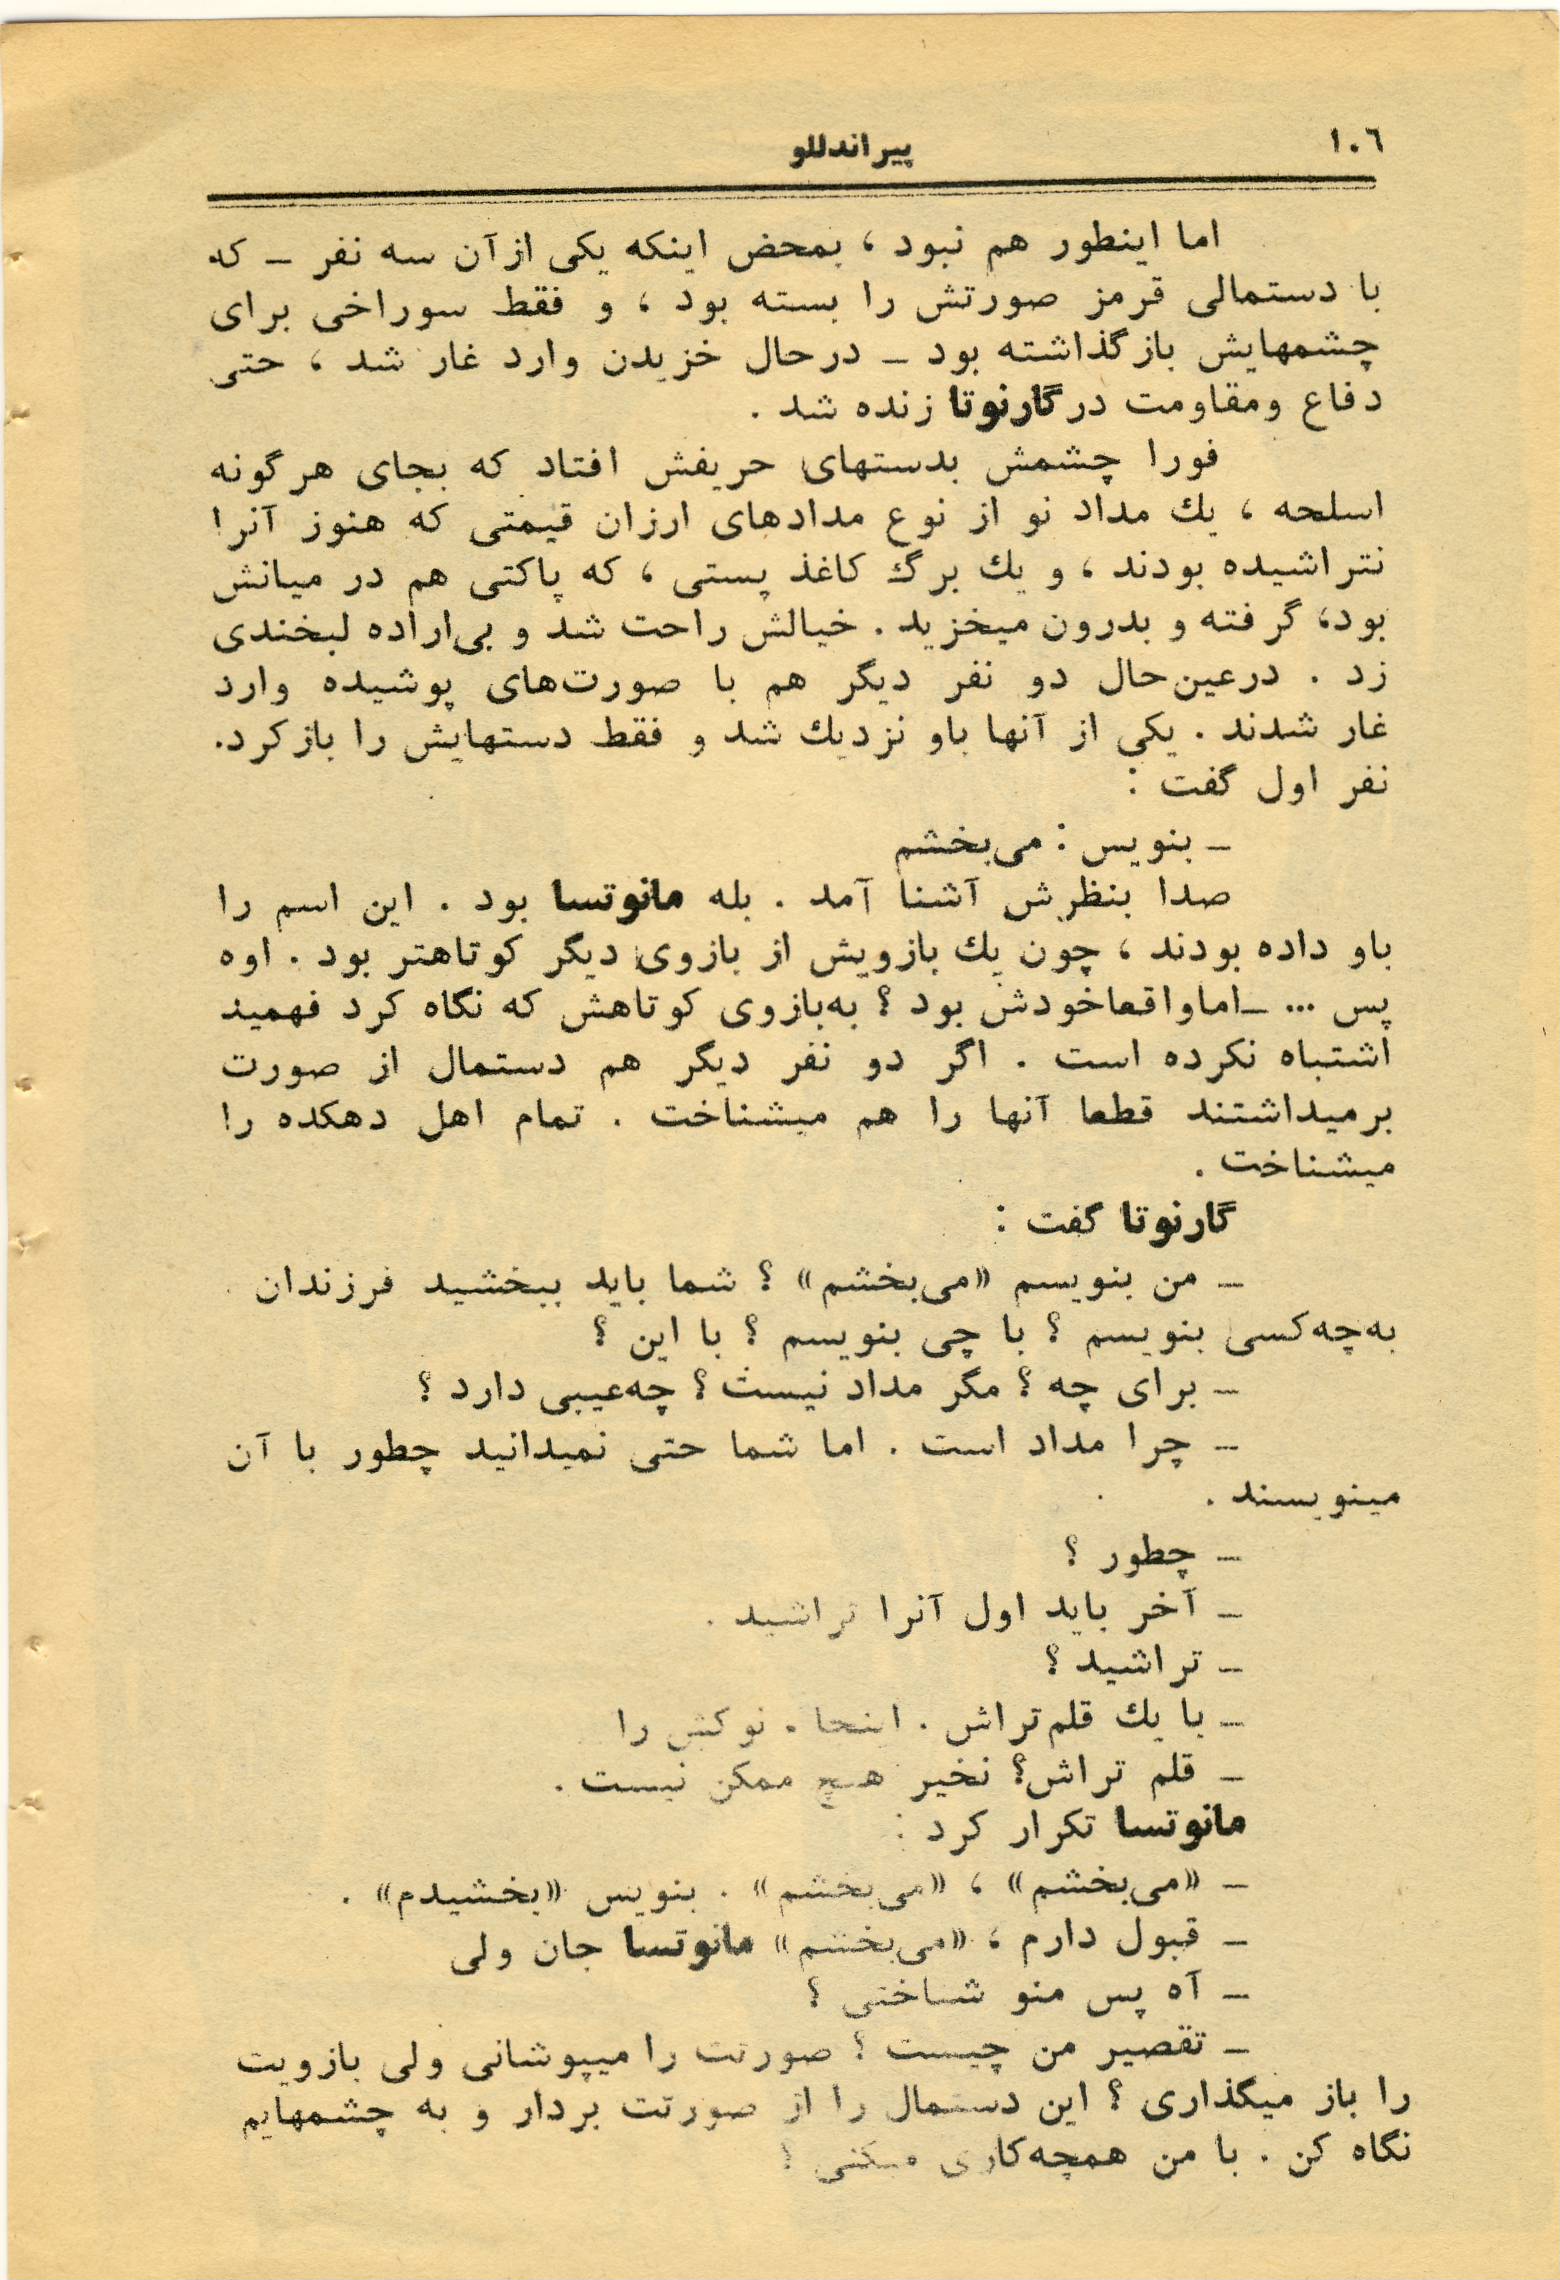 ١٠٦
پیراندللو
اما اینطور هم نبود ، بمحض اینکه یکی ازآن سه نفر – که
با دستمالی قرمز صورتش را بسته بود ، و فقط سوراخی برای
چشمهایش بازگذاشته بود – درحال خزیدن وارد غار شد ، حتی
دفاع ومقاومت درگارنوتا زنده شد .
فورا چشمش بدستهای حریفش افتاد که بجای هرگونه
اسلحه ، یك مداد نو از نوع مدادهای ارزان قیمتی که هنوز آنرا
نتراشیده بودند ، و یك برگ کاغذ پستی ، که پاکتی هم در میانش
بود، گرفته و بدرون میخزید . خیالش راحت شد و بی‌اراده لبخندی
زد . درعین‌حال دو نفر دیگر هم با صورت‌های پوشیده وارد
غار شدند . یکی از آنها باو نزدیك شد و فقط دستهایش را بازکرد.
نفر اول گفت :
– بنویس : می‌بخشم
صدا بنظرش آشنا آمد . بله مانوتسا بود . این اسم را
باو داده بودند ، چون یك بازویش از بازوی دیگر کوتاهتر بود . اوه
پس ... –اماواقعاخودش بود ؟ به‌بازوی کوتاهش که نگاه کرد فهمید
اشتباه نکرده است . اگر دو نفر دیگر هم دستمال از صورت
برمیداشتند قطعا آنها را هم میشناخت . تمام اهل دهکده را
میشناخت .
گارنوتا گفت :
– من بنویسم «می‌بخشم» ؟ شما باید ببخشید فرزندان
به‌چه‌کسی بنویسم ؟ با چی بنویسم ؟ با این ؟
– برای چه ؟ مگر مداد نیست ؟ چه‌عیبی دارد ؟
– چرا مداد است . اما شما حتی نمیدانید چطور با آن
مینویسند .
– چطور ؟
– آخر باید اول آنرا تراشید .
– تراشید ؟
– با یك قلم‌تراش . اینجا . نوکش را
– قلم تراش؟ نخیر هیچ ممکن نیست .
مانوتسا تکرار کرد :
– «می‌بخشم» ، «می‌بخشم» . بنویس «بخشیدم» .
– قبول دارم ، «می‌بخشم» مانوتسا جان ولی
– آه پس منو شناختی ؟
– تقصیر من چیست ؟ صورتت را میپوشانی ولی بازویت
را باز میگذاری ؟ این دستمال را از صورتت بردار و به چشمهایم
نگاه کن . با من همچه‌کاری میکنی ؟